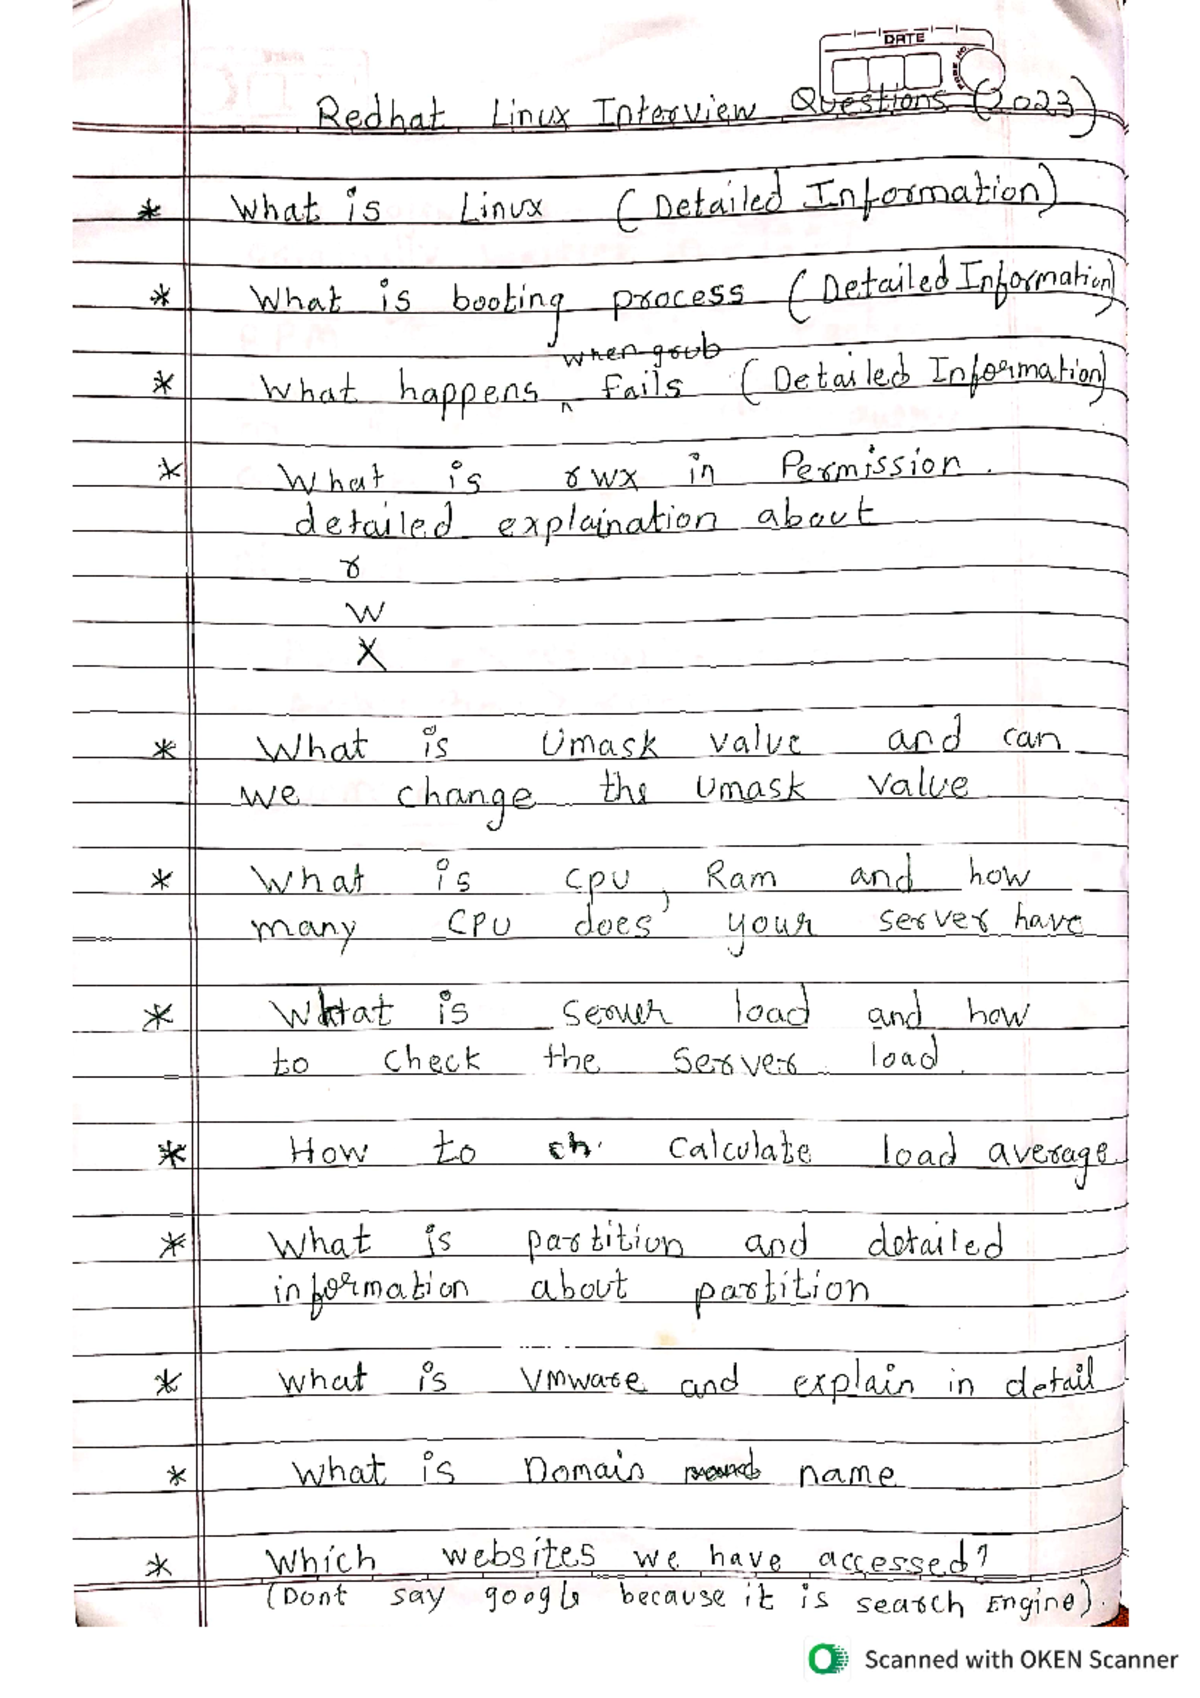 DATE
PAGE NO.
Redhat Linux Interview Questions (2023)
* What is Linux (Detailed Information)
* What is booting process (Detailed Information)
when grub
* What happens ^ fails (Detailed Information)
* What is rwx in Permission.
detailed explaination about
r
w
X
* What is Umask value and can
we change the Umask value
* What is cpu, Ram and how
many CPU does your server have
* What is server load and how
to check the server load.
* How to ch. calculate load average
* What is partition and detailed
information about partition
* what is vmware and explain in detail
* What is Domain name
* Which websites we have accessed?
(Dont say google because it is search Engine).
Scanned with OKEN Scanner